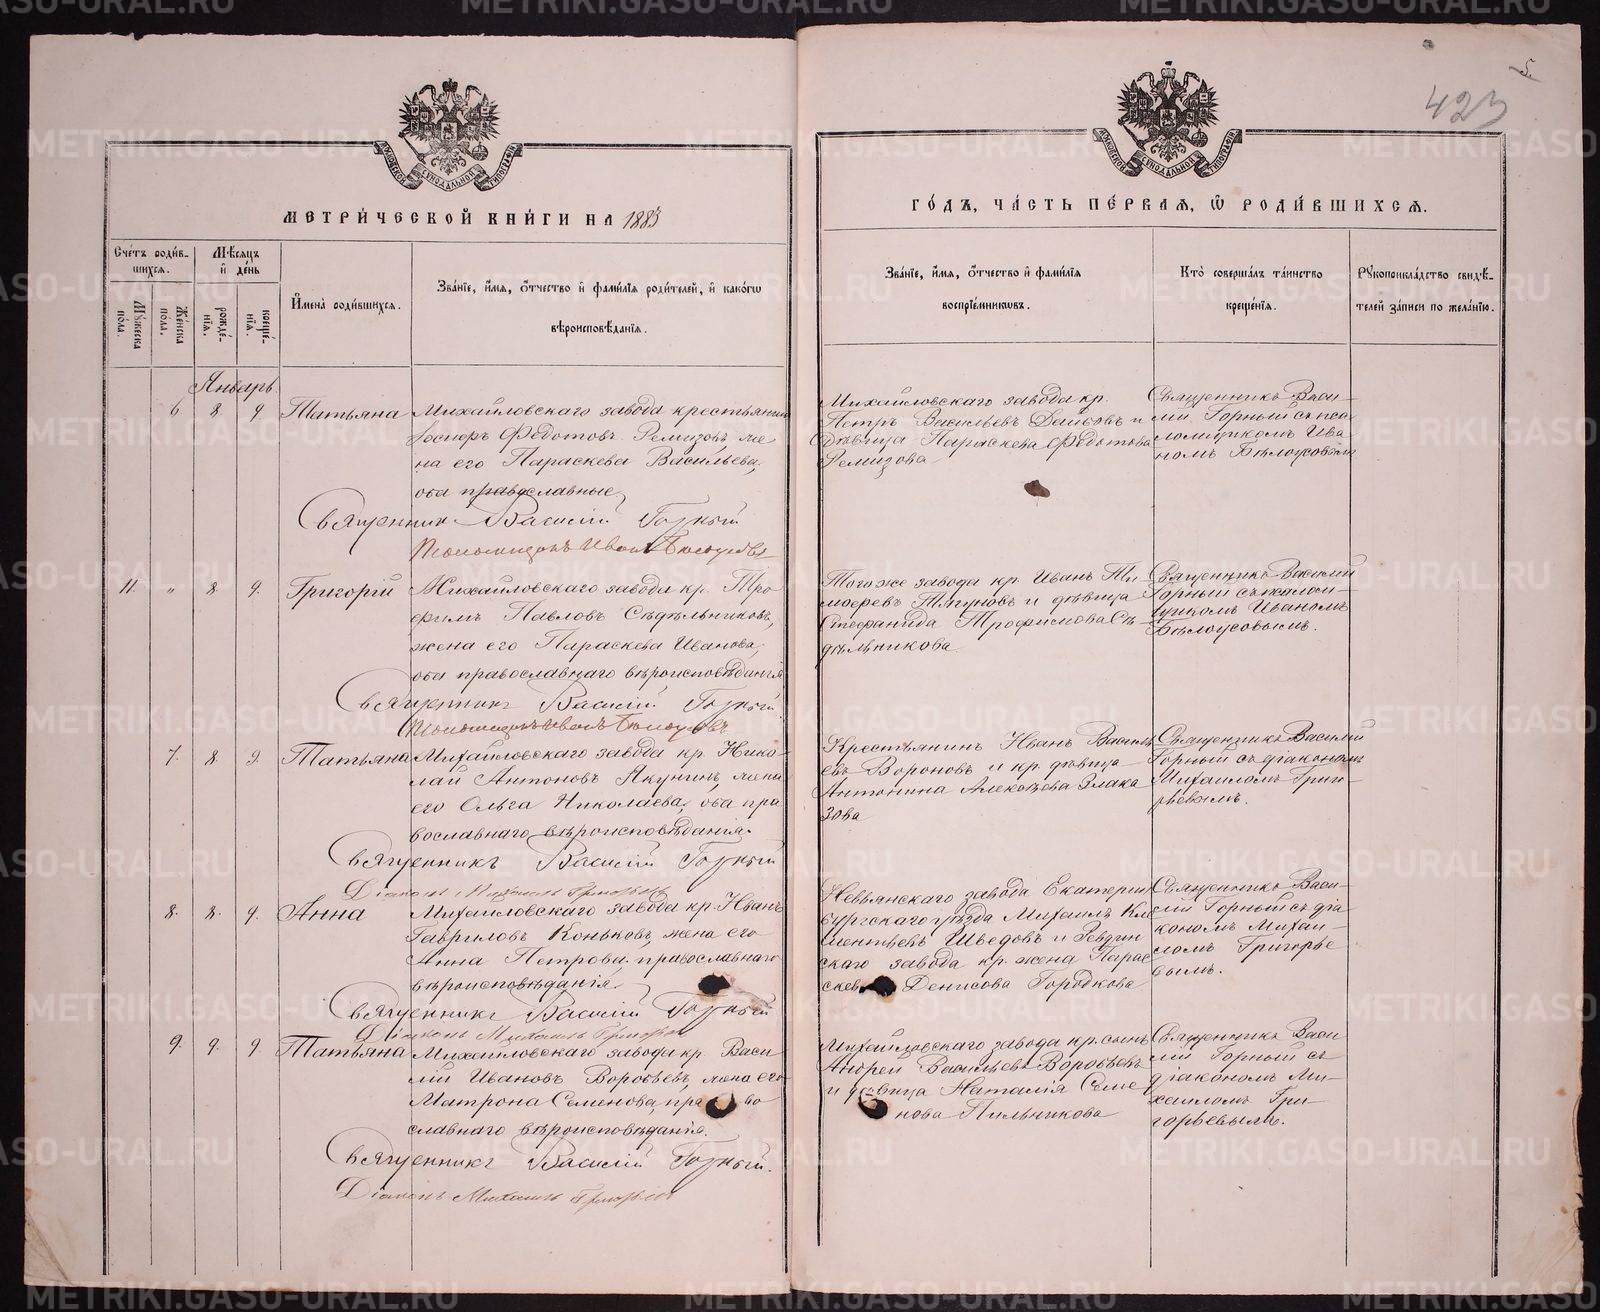 5.
423
МЕТРИ́ЧЕСКОЙ КНИ́ГИ НА 1883
ГО́ДЪ, ЧА́СТЬ ПЕ́РВАЯ, Ѡ РОДИ́ВШИХСЯ.
Сче́тъ роди́в-
шихся.
Мѣ́сяцъ
и҆ де́нь
Мꙋ́жеска
по́ла.
Же́нска
по́ла.
рожде́-
нїя.
креще́-
нїя.
И҆мена̀ роди́вшихся.
Зва́нїе, и҆́мя, ѻ҆́тчество и҆ фами́лїя роди́телей, и҆ како́гѡ
вѣроисповѣ́данїя.
Зва́нїе, и҆́мя, ѻ҆́тчество и҆ фами́лїя
воспрїе́мниковъ.
Кто̀ соверша́лъ та́инство
креще́нїя.
Рꙋкоприкла́дство свидѣ́-
телей за́писи по жела́нїю.
Январь
6 8 9. Татьяна
Михайловскаго завода крестьянинъ
Федотовъ Ремизовъ же-
на его Параскева Васильева,
оба православные,
Священникъ Василій Горный
Псаломщикъ Иванъ Бѣлоусовъ
Михайловскаго завода кр.
Петръ Васильевъ и
дѣвица Параскева Федотова
Ремизова
Священникъ Васи-
лій Горный съ пса
ломщикомъ Ива
номъ Бѣлоусовымъ
11. " 8 9. Григорій
Михайловскаго завода кр. Тро
фимъ Павловъ Сѣдѣльниковъ,
жена его Параскева Иванова,
оба православнаго вѣроисповѣданія
Священникъ Василій Горный
Псаломщикъ Иванъ Бѣлоусовъ
Тогоже завода кр. Иванъ Ти
мофеевъ Тягуновъ и дѣвица
Стефанида Трофимова Сѣ
дѣльникова
Священникъ Василій
Горный съ псалом-
щикомъ Иваномъ
Бѣлоусовымъ.
7. 8. 9. Татьяна
Михайловскаго завода кр. Нико-
лай Антоновъ Якунинъ, жена
его Ольга Николаева, оба пра
вославнаго вѣроисповѣданія.
Священникъ Василій Горный
Діаконъ Михаилъ Григорьевъ
Крестьянинъ Иванъ Василь
евъ Вороновъ и кр. дѣвица
Антонина Алексѣева Злака
зова
Священникъ Василій
Горный съ діакономъ
Михаиломъ Григо-
рьевымъ.
8. 8. 9. Анна
Михайловскаго завода кр. Иванъ
Гавриловъ Коньковъ, жена его
Анна Петрова, православнаго
вѣроисповѣданія.
Священникъ Василій Горный
Діаконъ Михаилъ Григорьевъ
Невьянскаго завода Екатерин
бургскаго уѣзда Михаилъ Кле
ментьевъ Шведовъ и Ревдин
скаго завода кр. жена Парас
кев Денисова Городкова
Священникъ Васи-
лій Горный съ діа
кономъ Михаи-
ломъ Григорье
вымъ.
9. 9. 9. Татьяна
Михайловскаго завода кр. Васи
лій Ивановъ Воробьевъ, жена его
Матрона Семенова, пра во
славнаго вѣроисповѣданія.
Священникъ Василій Горный.
Діаконъ Михаилъ Григорьевъ
Михайловскаго завода кр. сынъ
Андрей Васильевъ Воробьевъ
и дѣвица Наталія Семе
нова Пильникова
Священникъ Васи
лій Горный съ
діакономъ Ми-
хаиломъ Гри-
горьевымъ.